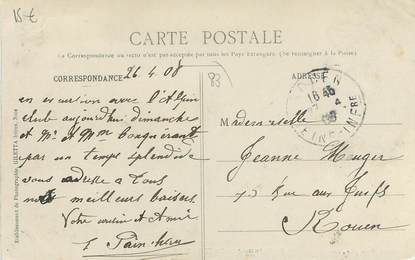 15 €
CARTE POSTALE
La Correspondance au recto n'est pas acceptée par tous les Pays Étrangers. (Se renseigner à la Poste)
CORRESPONDANCE
26.4.08
83
en excursion avec l'Alpin
club aujourd'hui dimanche
et Mr et Mme Conquérant
par un temps splendide
vous adresse a tous
meilleurs baisers
Votre cousin et Ami
ROUEN
16 45
SEINE-INFRE
Mademoiselle
Jeanne Muger
75 Rue aux Juifs
Rouen
Etablissement de Photographie GILETTA